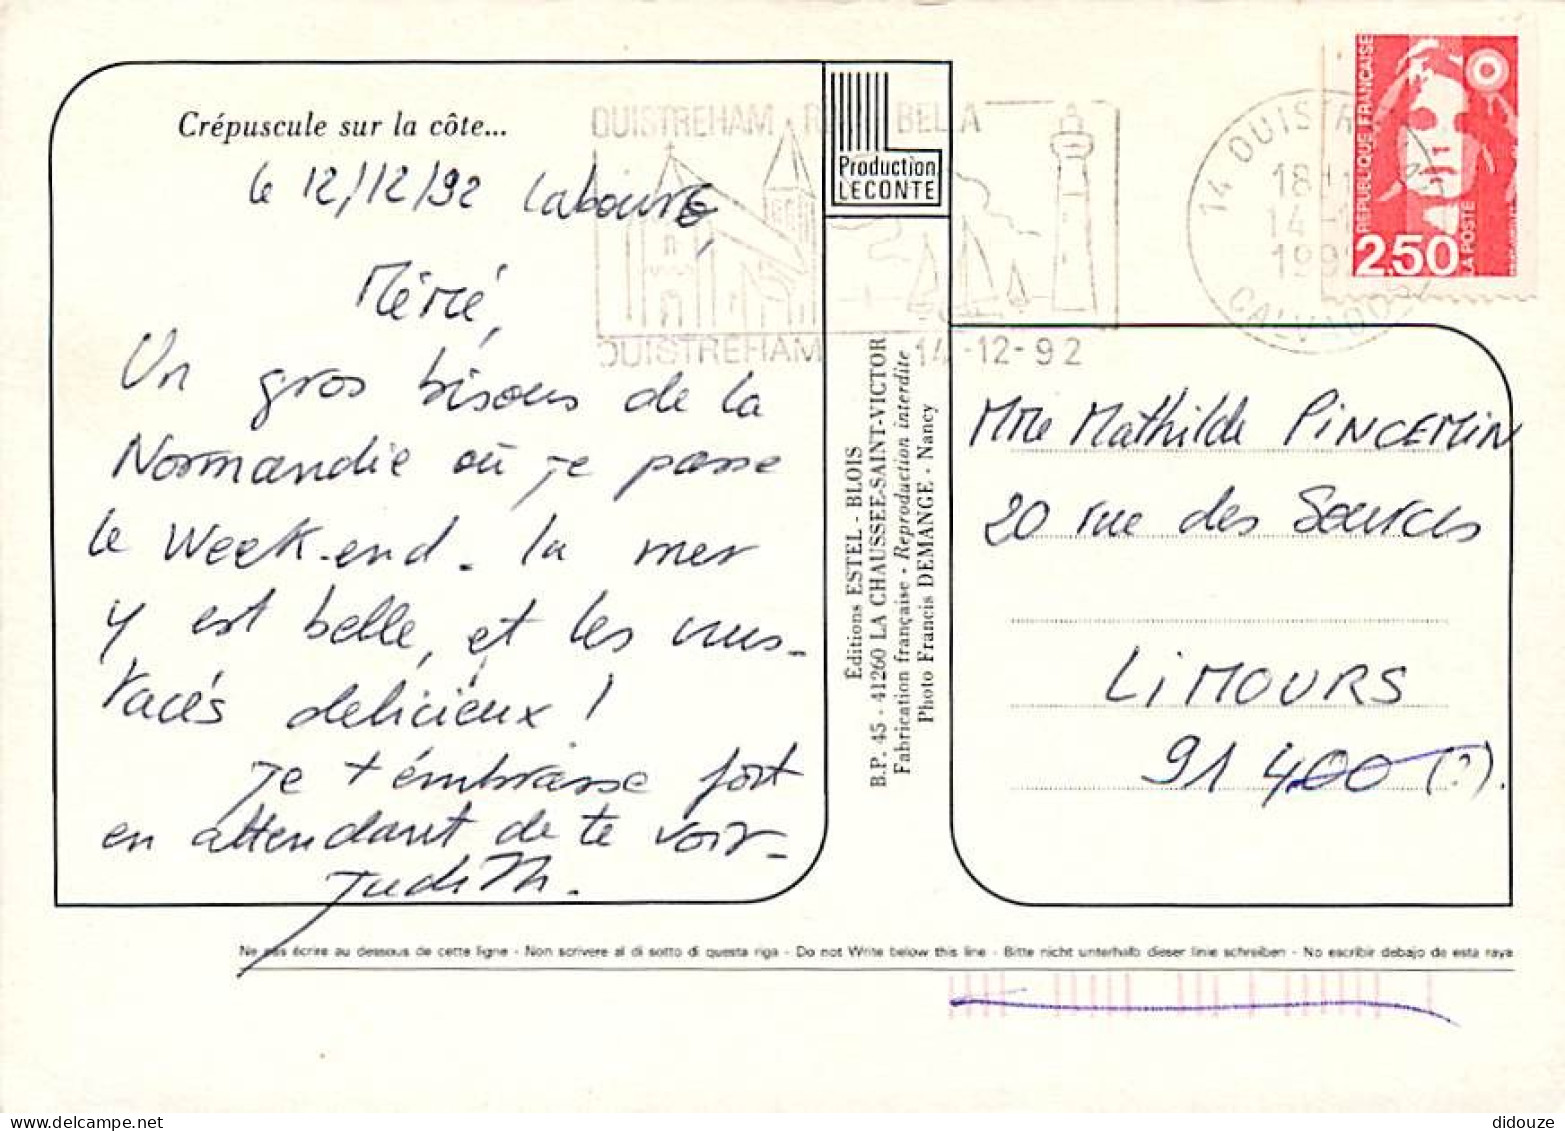 Crépuscule sur la côte...
le 12/12/92 Cabourg,
Mémé,
Un gros bisous de la
Normandie où je passe
le Week-end. la mer
y est belle, et les crus-
tacés delicieux !
Je t'embrasse fort
en attendant de te voir.
Judith.
OUISTREHAM RIVA BELLA
OUISTREHAM 14-12-92
Production
LECONTE
Éditions ESTEL - BLOIS
B.P. 45 - 41260 LA CHAUSSEE-SAINT-VICTOR
Fabrication française - Reproduction interdite
Photo Francis DEMANGE - Nancy
14 OUISTR
18H
14-1
199
CALVADOS
REPUBLIQUE FRANÇAISE
2,50
LA POSTE
Mme Mathilde PINCEMIN
20 rue des Sources
LIMOURS
91 400 (?).
Ne pas écrire au dessous de cette ligne - Non scrivere al di sotto di questa riga - Do not Write below this line - Bitte nicht unterhalb dieser linie schreiben - No escribir debajo de esta raya
didouze